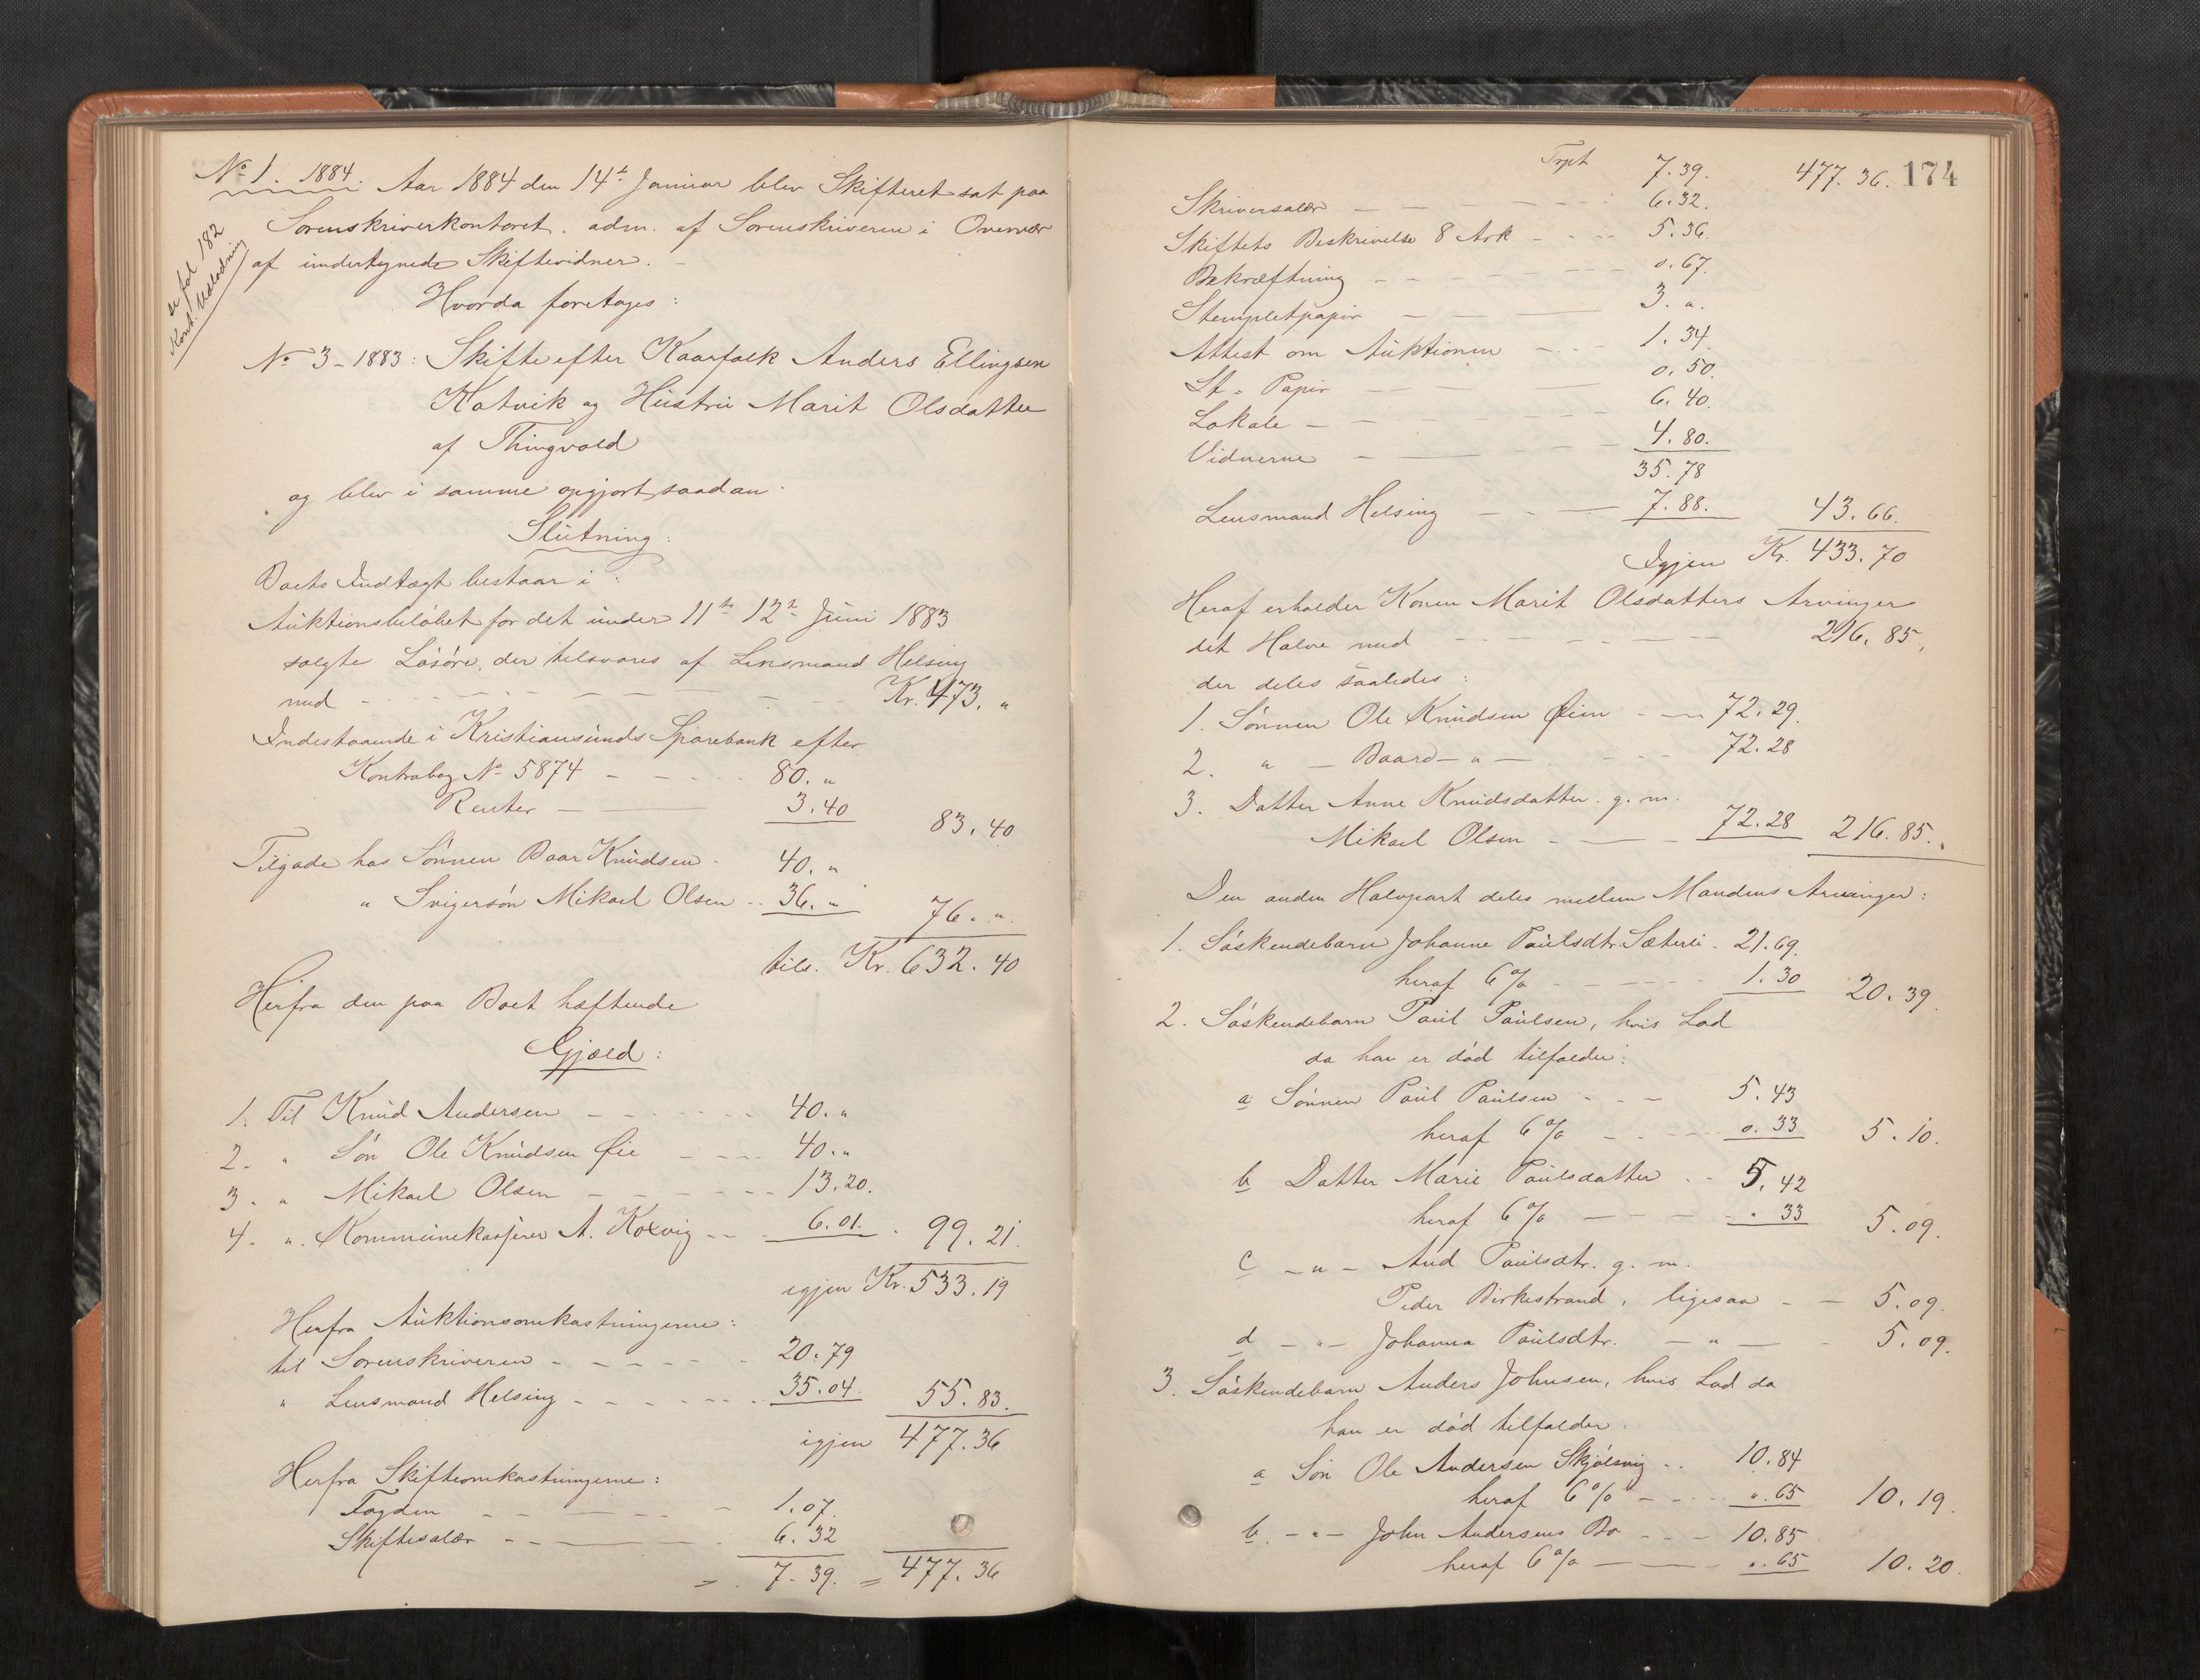 No 1. 1884. Aar 1884 den 14de Januar blev Skifteret sat paa
Sorenskriverkontoret. adm. af Sorenskriveren i Overvær
af undertegnede Skiftevidner.
se fol 182
Kont. Udlodning
Hvorda foretages:
No 3 - 1883: Skifte efter Kaarfolk Anders Ellingsen
Kotvik og Hustru Marit Olsdatter
af Thingvold
og blev i samme opgjort saadan.
Slutning:
Boets Indtægt bestaar i:
Auktionsbeløbet for det under 11te 12te Juni 1883
solgte Løsøre, der tilsvares af Lensmand Helsing
med - - - - - Kr. 473. "
Indestaaende i Kristiansunds Sparebank efter
Kontrabog No 5874 - - - 80. "
Renter - - 3.40 83.40
Tilgode hos Sønnen Baar Knudsen - 40. "
" Svigersøn Mikael Olsen - 36. " 76. "
tils. Kr. 632.40
Herfra den paa Boet hæftende
Gjæld:
1. Til Knud Andersen - - - 40. "
2. " Søn Ole Knudsen Øie - - - 40. "
3. " Mikael Olsen - - - 13.20.
4. " Kommunekasserer A. Koxvig - - 6.01. 99.21.
igjen Kr. 533.19
Herfra Auktionsomkostningerne:
til Sorenskriveren - - - 20.79
" Lensmand Helsing - - - 35.04. 55.83.
igjen 477.36
Herfra Skifteomkostningerne:
Fogden - - - 1.07.
Skiftesalær - - - 6.32
= 7.39. = 477.36
Trpt 7.39. 477.36. 174
Skriversalær - - - 6.32.
Skiftets Beskrivelse 8 Ark - - - 5.36.
Bekræftning - - - 0.67.
Stempletpapir - - - 3. "
Attest om Auktionen - - - 1.34.
St. Papir - - - 0.50.
Lokale - - - 6.40.
Vidnerne - - - 4.80.
35.78
Lensmand Helsing - - - 7.88. 43.66.
Igjen Kr. 433.70
Heraf erholder Konen Marit Olsdatters Arvinger
det Halve med - - - 216.85,
der deles saaledes:
1. Sønnen Ole Knudsen Øien - - 72.29.
2. " - Baard - " - - - 72.28
3. Datter Anne Knudsdatter. g. m.
Mikael Olsen - - - 72.28 216.85.
Den anden Halvpart deles mellem Mandens Arvinger:
1. Søskendebarn Johanne Paulsdtr. Sæterli - 21.69.
heraf 6 % - - - 1.30 20.39.
2. Søskendebarn Paul Paulsen, hvis Lod
da han er død tilfalder:
a Sønnen Paul Paulsen - - - 5.43
heraf 6 % - - - 0.33 5.10.
b Datter Marie Paulsdatter - - 5.42
heraf 6 % - - - " 33 5.09.
c - " - And Paulsdtr. g. m.
Peder Birkestrand, ligesaa - - 5.09.
d - " - Johanna Paulsdtr. - " - 5.09.
3. Søskendebarn Anders Johnsen, hvis Lod da
han er død tilfalder
a Søn Ole Andersen Skjølsvig - - 10.84
heraf 6 % - - - ". 65 10.19.
b. - " - John Andersens Bo - - - 10.85
heraf 6 % - - - ". 65 10.20.